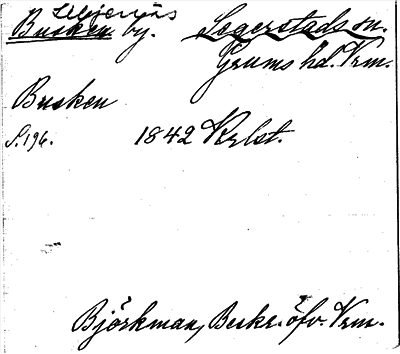 Busken by. Segerstads sn.
Grums hd. Vrm.
Busken
S. 196. 1842 Krlst.
Björkman, Beskr. öfv. Vrm.